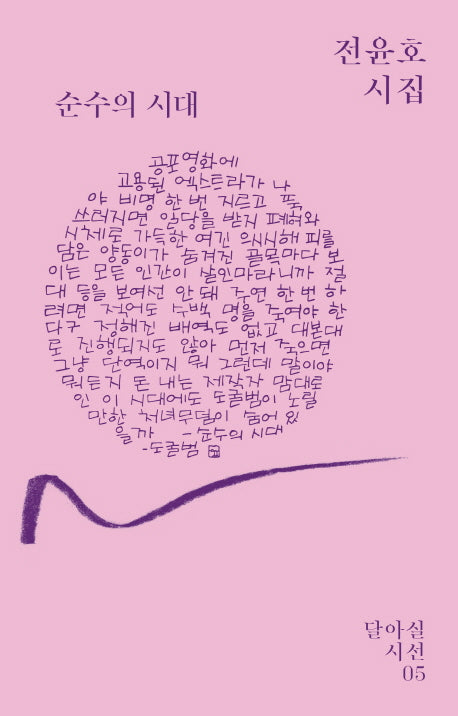 전윤호
시집
순수의 시대
공포영화에
고용된 엑스트라가 나
야 비명 한 번 지르고 푹
쓰러지면 일당을 받지 폐허와
시체로 가득한 여긴 으시시해 피를
담은 양동이가 숨겨진 골목마다 보
이는 모든 인간이 살인마라니까 절
대 등을 보여선 안 돼 주연 한 번 하
려면 적어도 수백 명을 죽여야 한
다구 정해진 배역도 없고 대본대
로 진행되지도 않아 먼저 죽으면
그냥 단역이지 뭐 그런데 말이야
뭐든지 돈 내는 제작자 맘대로
인 이 시대에도 도굴범이 노릴
만한 처녀무덤이 숨어 있
을까 - 순수의 시대
- 도굴범
달아실
시선
05